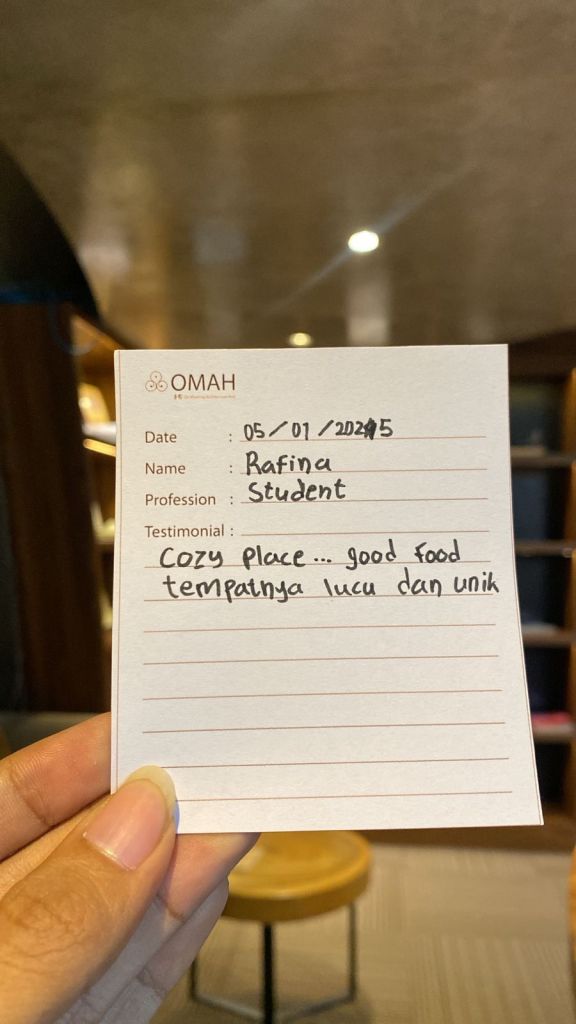 OMAH
Date : 05/01/2025
Name : Rafina
Profession : Student
Testimonial :
Cozy place... good food
tempatnya lucu dan unik